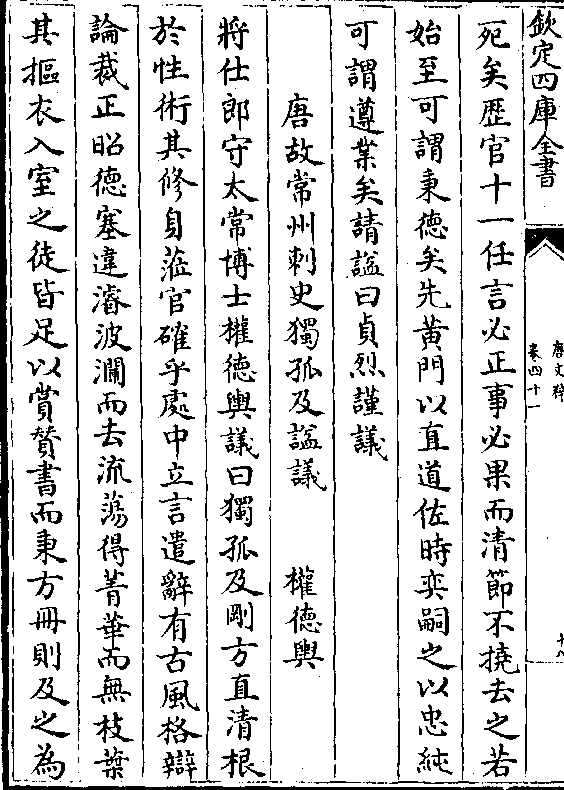 欽定四庫全書
唐文粹
卷四十一
十八
死矣歴官十一任言必正事必果而清節不撓去之若
始至可謂秉德矣先黃門以直道佐時奕嗣之以忠純
可謂遵業矣請諡曰貞烈謹議
唐故常州刺史獨孤及諡議　權德輿
將仕郎守太常博士權德輿議曰獨孤及剛方直清根
於性術其修身蒞官確乎處中立言遣辭有古風格辯
論裁正昭德塞違濬波瀾而去流蕩得菁華而無枝葉
其摳衣入室之徒皆足以賞贊書而秉方冊則及之為